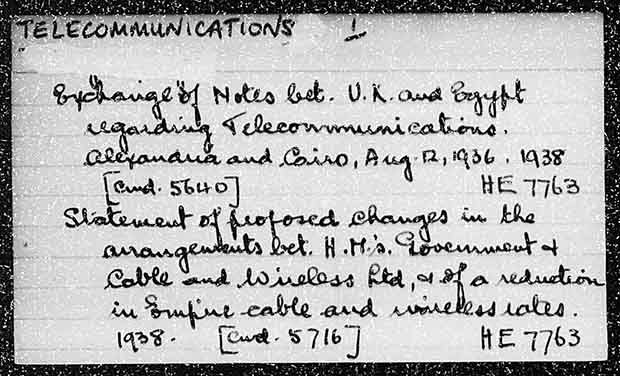 TELECOMMUNICATIONS 1
Exchange of Notes bet. U.K. and Egypt
regarding Telecommunications.
Alexandria and Cairo, Aug. 12, 1936. 1938
[Cmd. 5640] HE 7763
Statement of proposed changes in the
arrangements bet. H.M.'s. Government &
Cable and Wireless Ltd, & of a reduction
in Empire cable and wireless rates.
1938. [Cmd. 5716] HE 7763